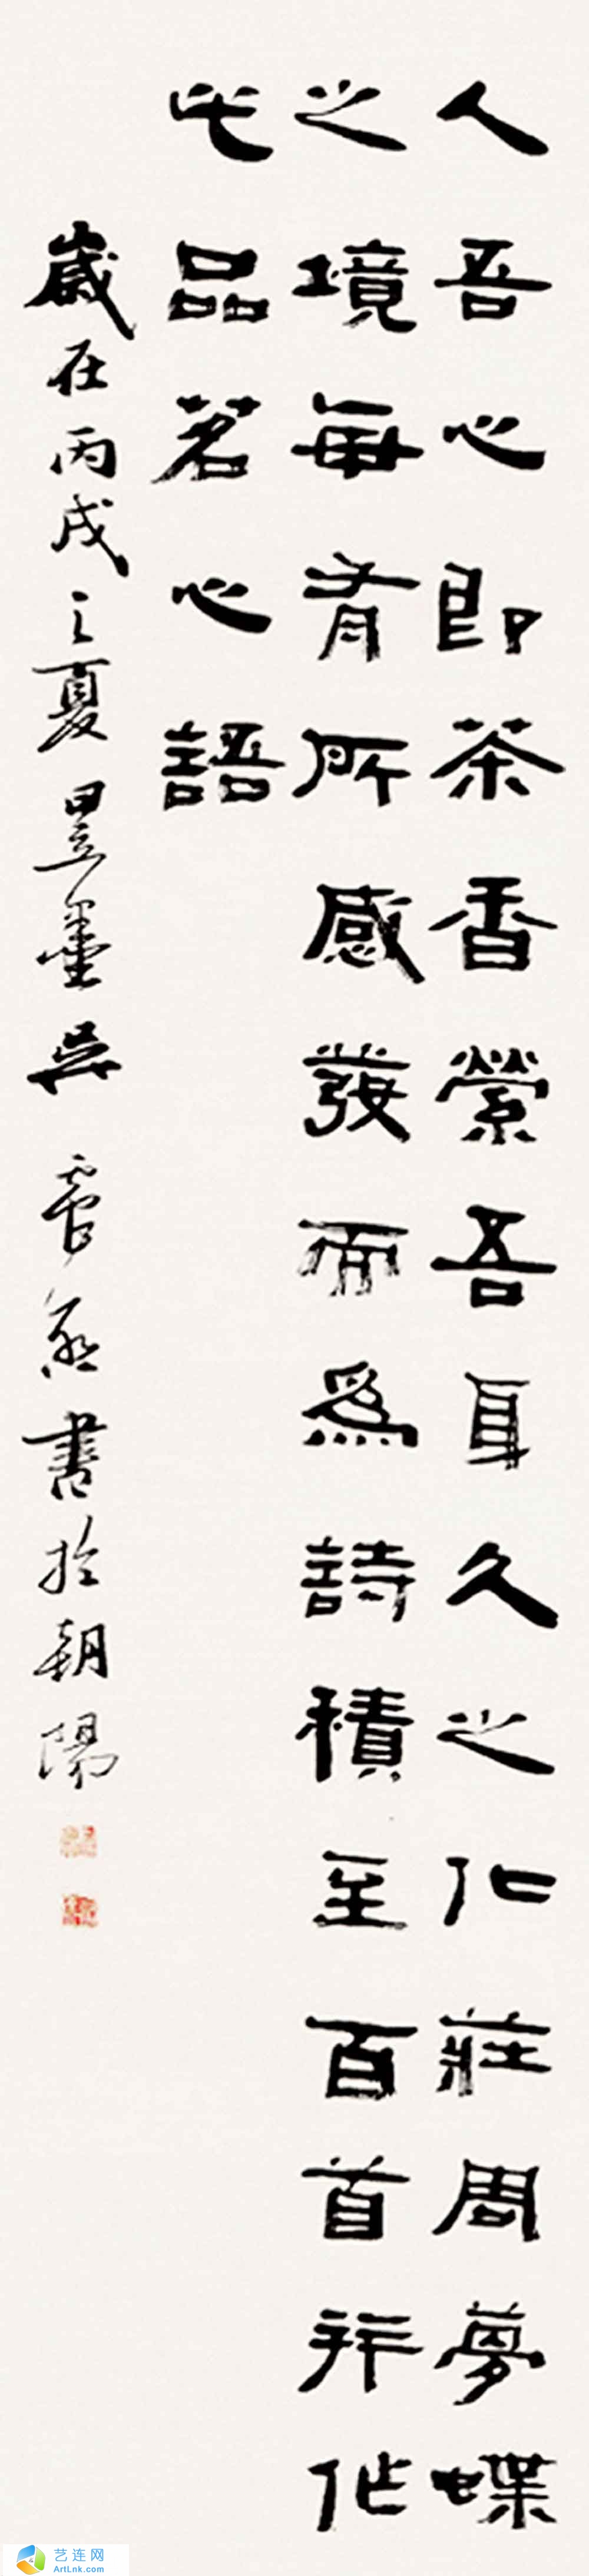 人吾心即茶香縈吾耳久之化莊周夢蝶
之境每有所感發而爲詩積至百首并作
此品茗心語
歲在丙戌之夏書於朝陽
艺连网
ArtLnk.com